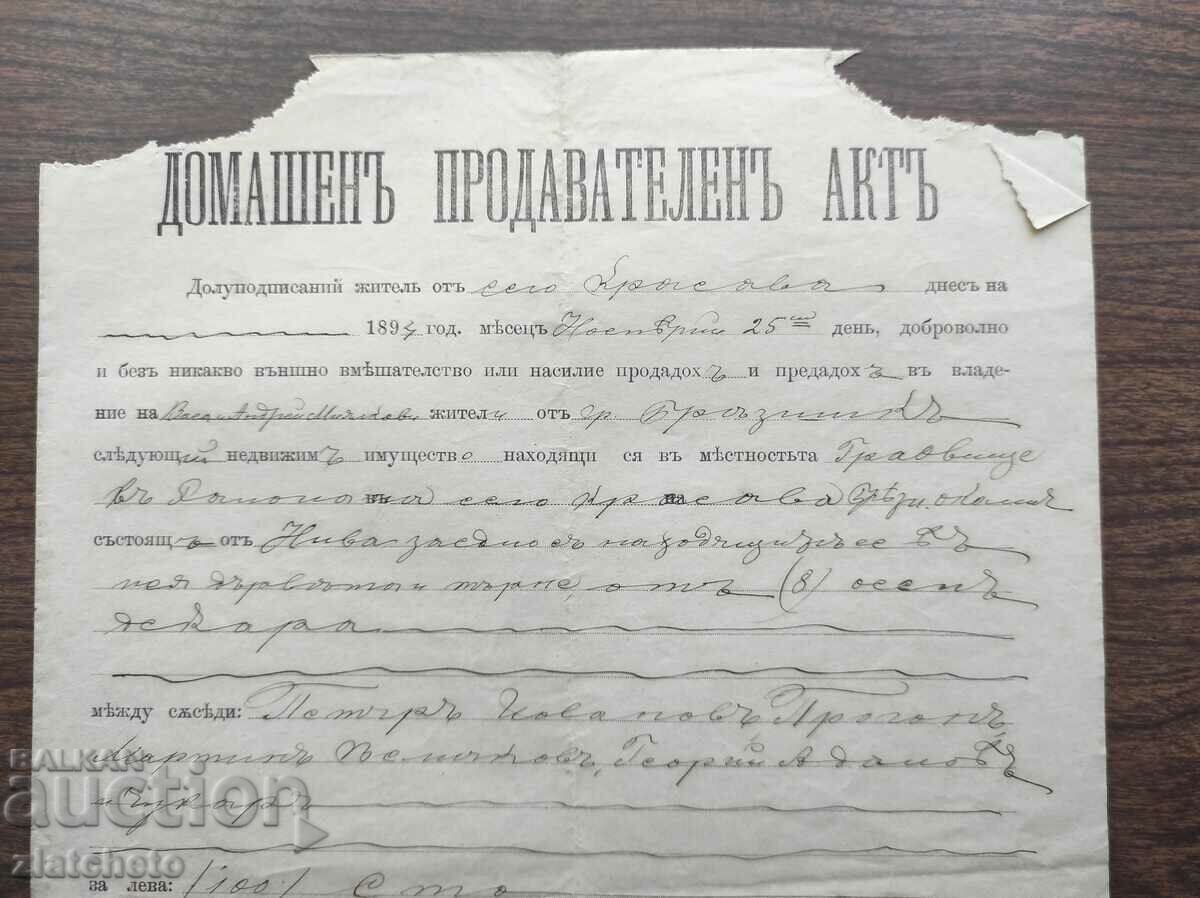 ДОМАШЕНЪ ПРОДАВАТЕЛЕНЪ АКТЪ
Долуподписаний житель отъ село Красава днесъ на
189 год. мѣсецъ Ноемврий 25 день, доброволно
и безъ никакво външно вмѣшателство или насилие продадохъ и предадохъ въ владе-
ние на и Андрей жители отъ гр Брѣзникъ
слѣдующий недвижимъ имущество находящи ся въ мѣстностьта Градище
въ на село Красава
състоящъ отъ Нива заедно съ находящитѣ се въ
нея дървѣта и търне отъ (8) осемъ
декара
мѣжду сѫсѣди: Петъръ Йовановъ,
Мартинъ Георгий Адамовъ
и Чукаръ
за лева: (100) Сто
BALKAN
auction
zlatcheto